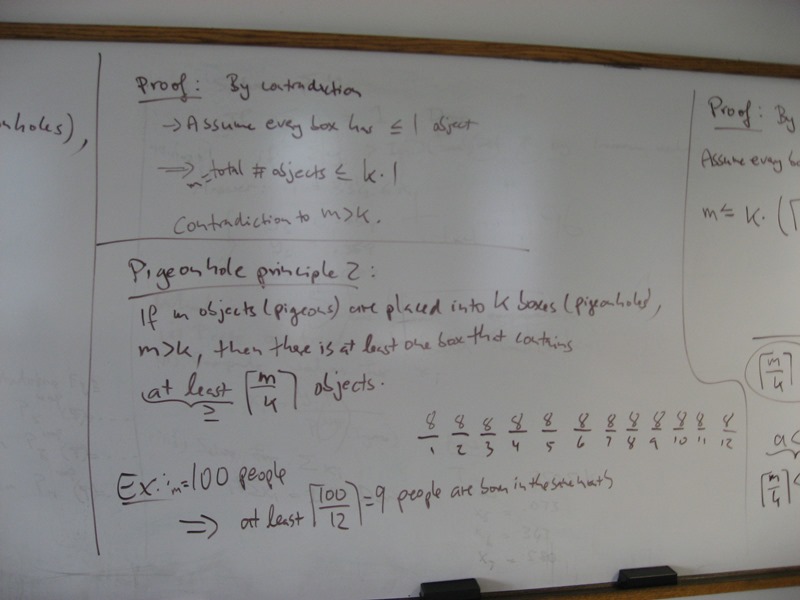 nholes),
Proof: By contradiction
→ Assume every box has ≤ 1 object
⟹ m = total # objects ≤ k·1
Contradiction to m>k.
Pigeonhole principle 2:
If m objects (pigeons) are placed into k boxes (pigeonholes),
m>k, then there is at least one box that contains
at least ⌈m/k⌉ objects.
≥
8 8 8 8 8 8 8 8 8 8 8 8
1 2 3 4 5 6 7 8 9 10 11 12
Ex.: m=100 people
⟹ at least ⌈100/12⌉ = 9 people are born in the same month
Proof: By
Assume every bo
m ≤ k·(⌈
⌈m/k⌉
a
⌈m/k⌉ <